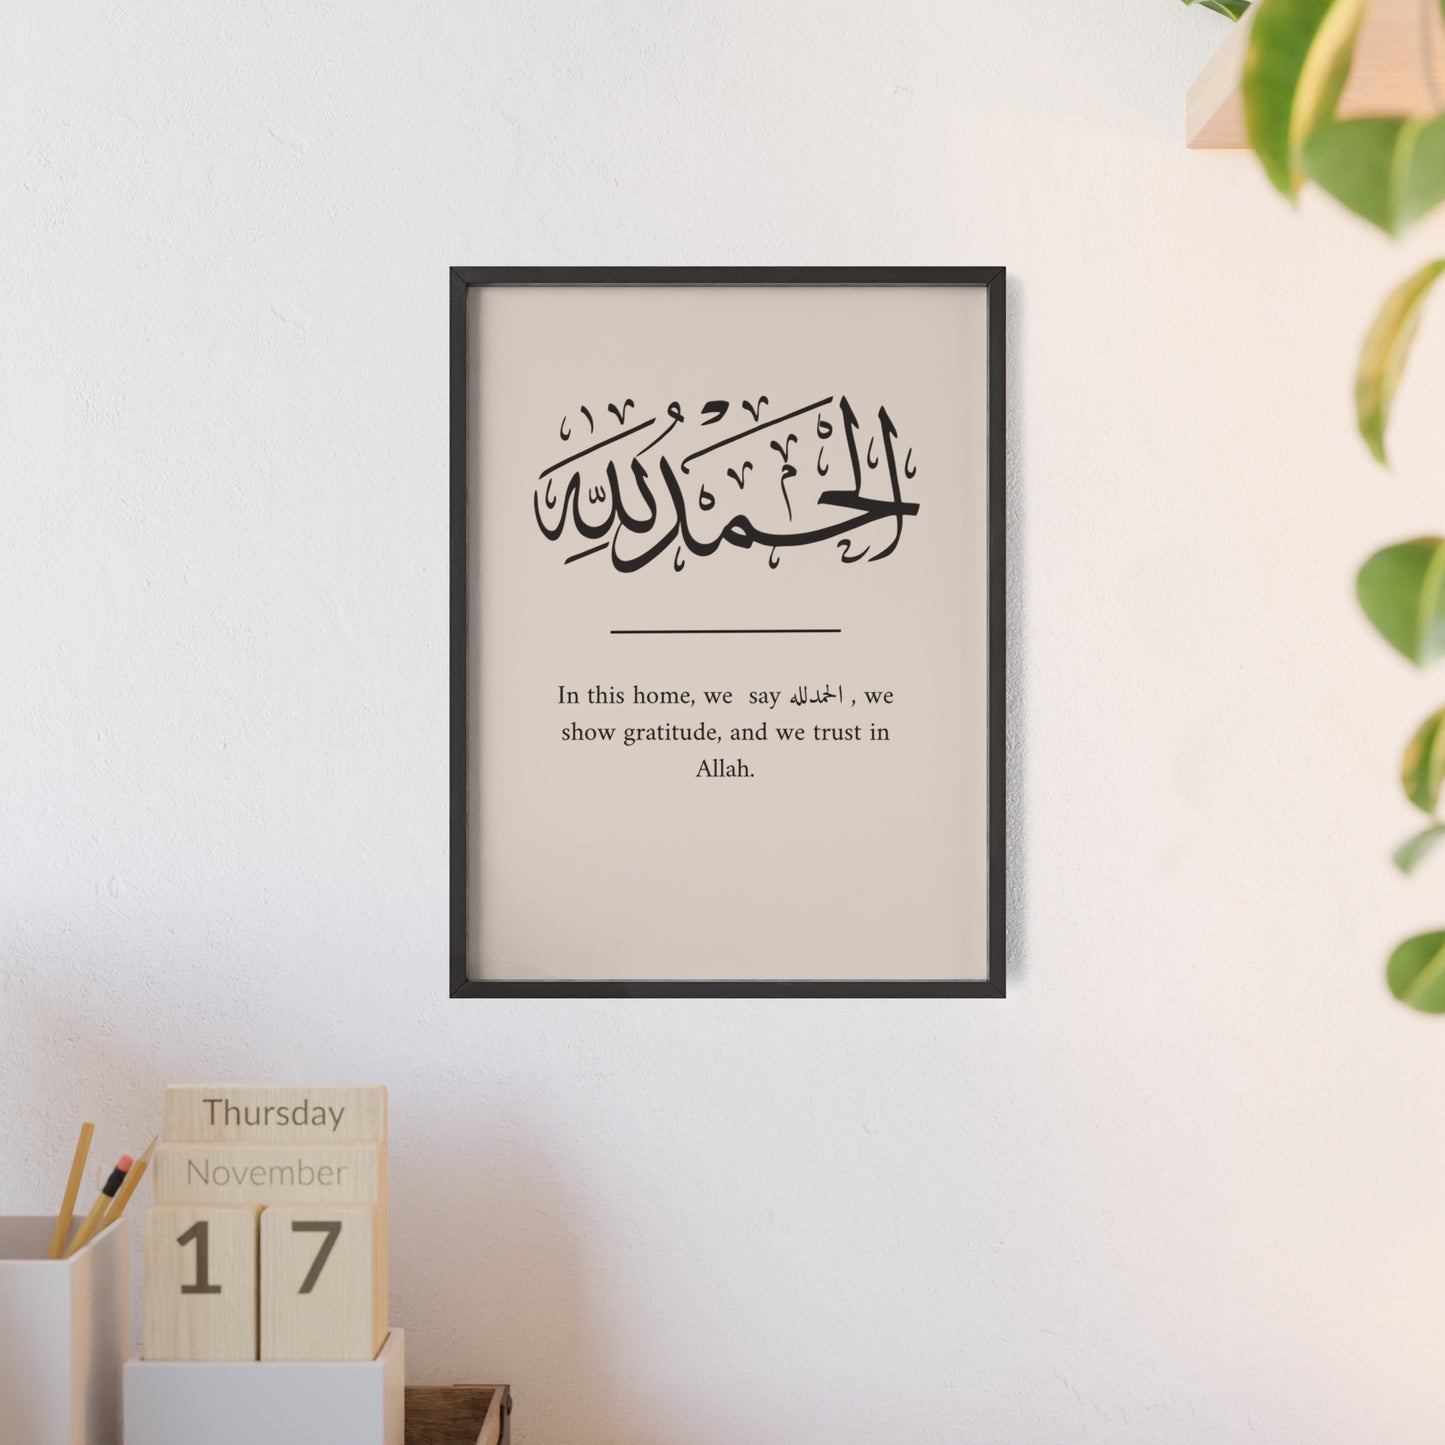 الحمد لله
In this home, we say الحمدلله , we
show gratitude, and we trust in
Allah.
Thursday
November
17